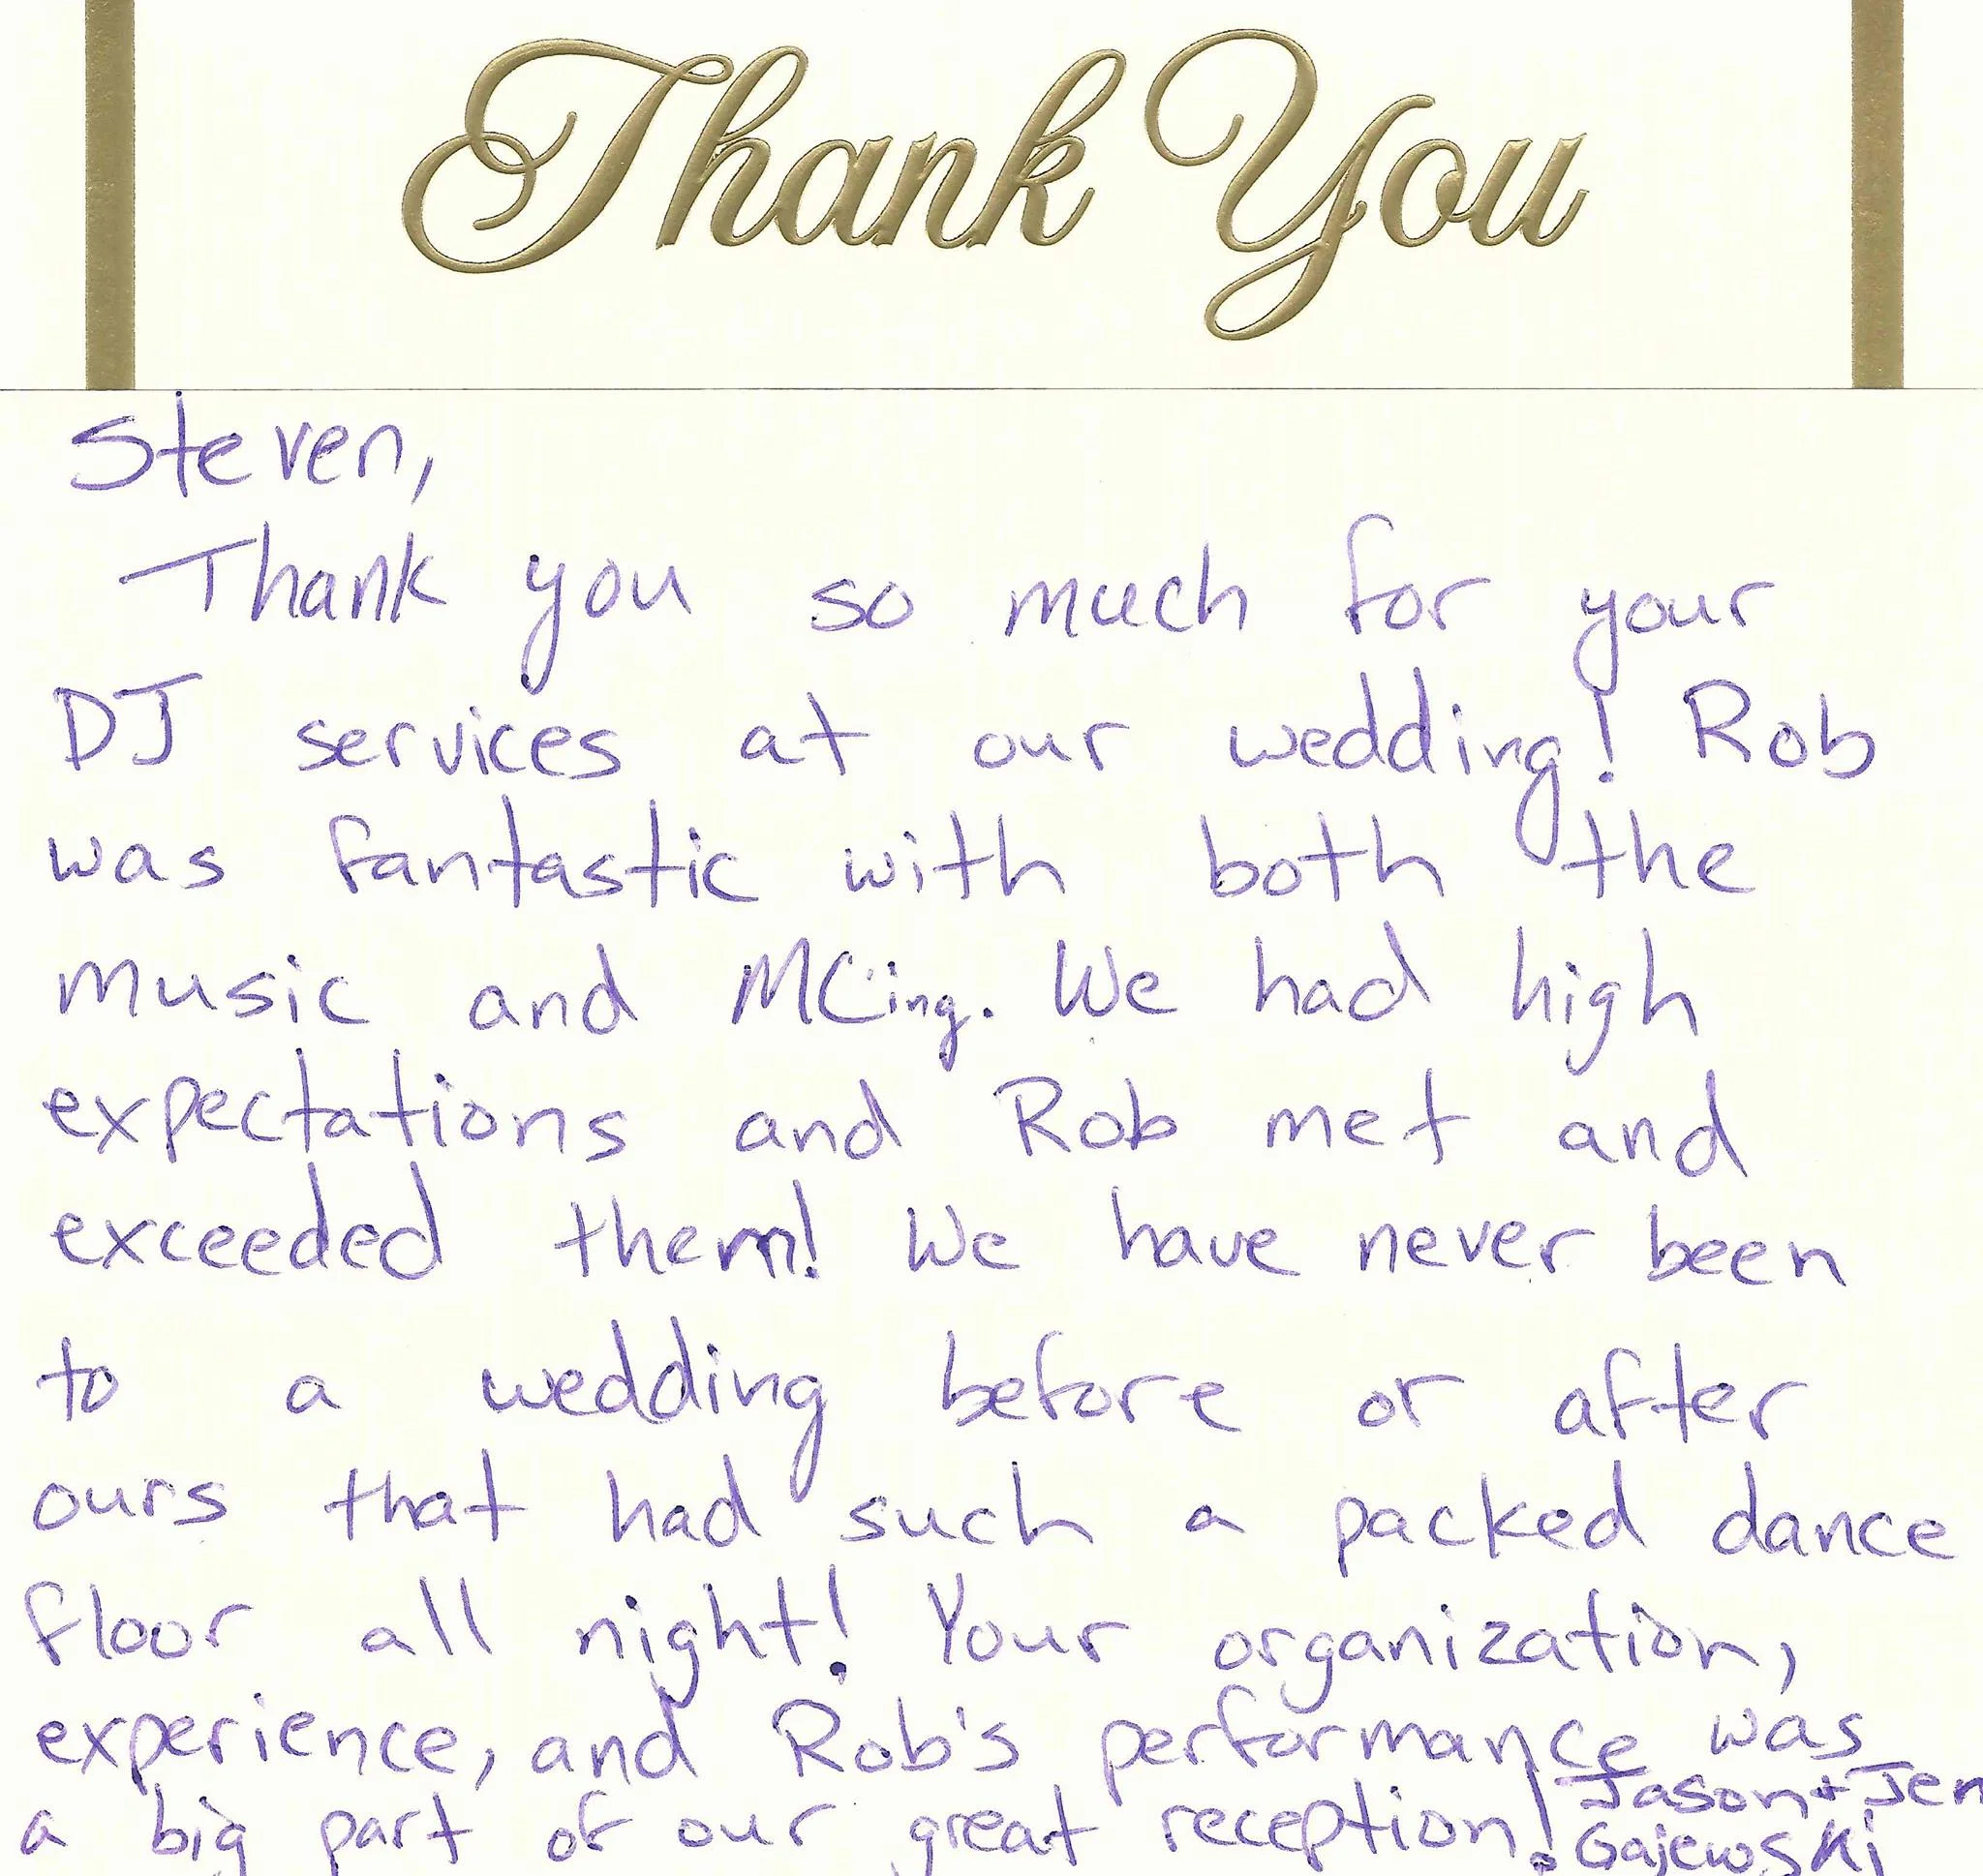 Thank You
Steven,
Thank you so much for your
DJ services at our wedding! Rob
was fantastic with both the
music and MCing. We had high
expectations and Rob met and
exceeded them! We have never been
to a wedding before or after
ours that had such a packed dance
floor all night! Your organization,
experience, and Rob's performance was
a big part of our great reception!
Jason + Jen
Gajewski